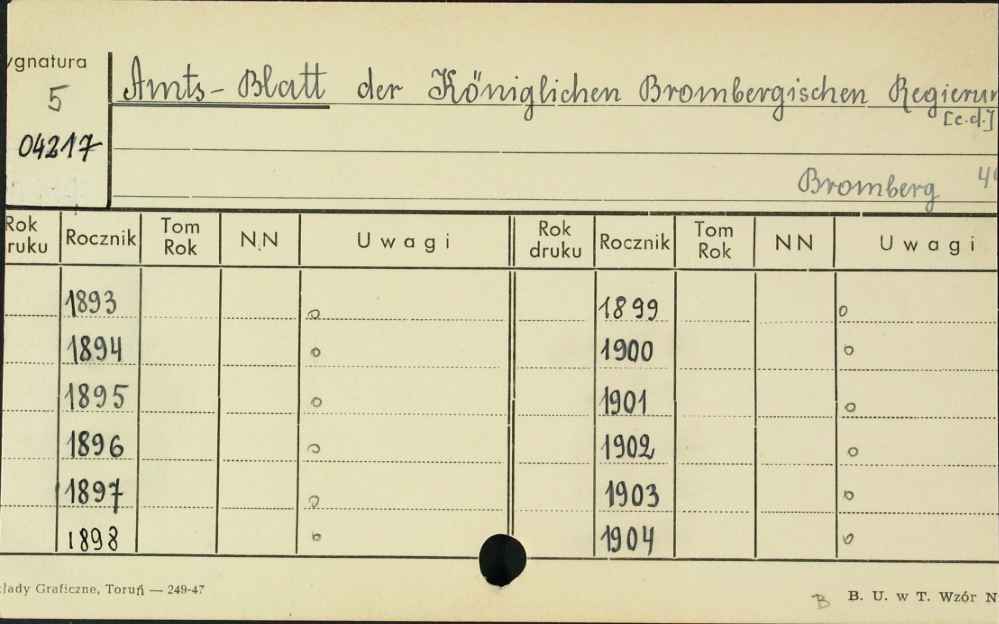 ygnatura
5
04217
Amts-Blatt der Königlichen Brombergischen Regierun
[c.d.]
Bromberg 4
Rok
ruku Rocznik Tom
Rok N.N Uwagi Rok
druku Rocznik Tom
Rok NN Uwagi
1893 o 1899 o
1894 o 1900 o
1895 o 1901 o
1896 o 1902 o
1897 o 1903 o
1898 o 1904 o
łady Graficzne, Toruń — 249-47
B B. U. w T. Wzór N